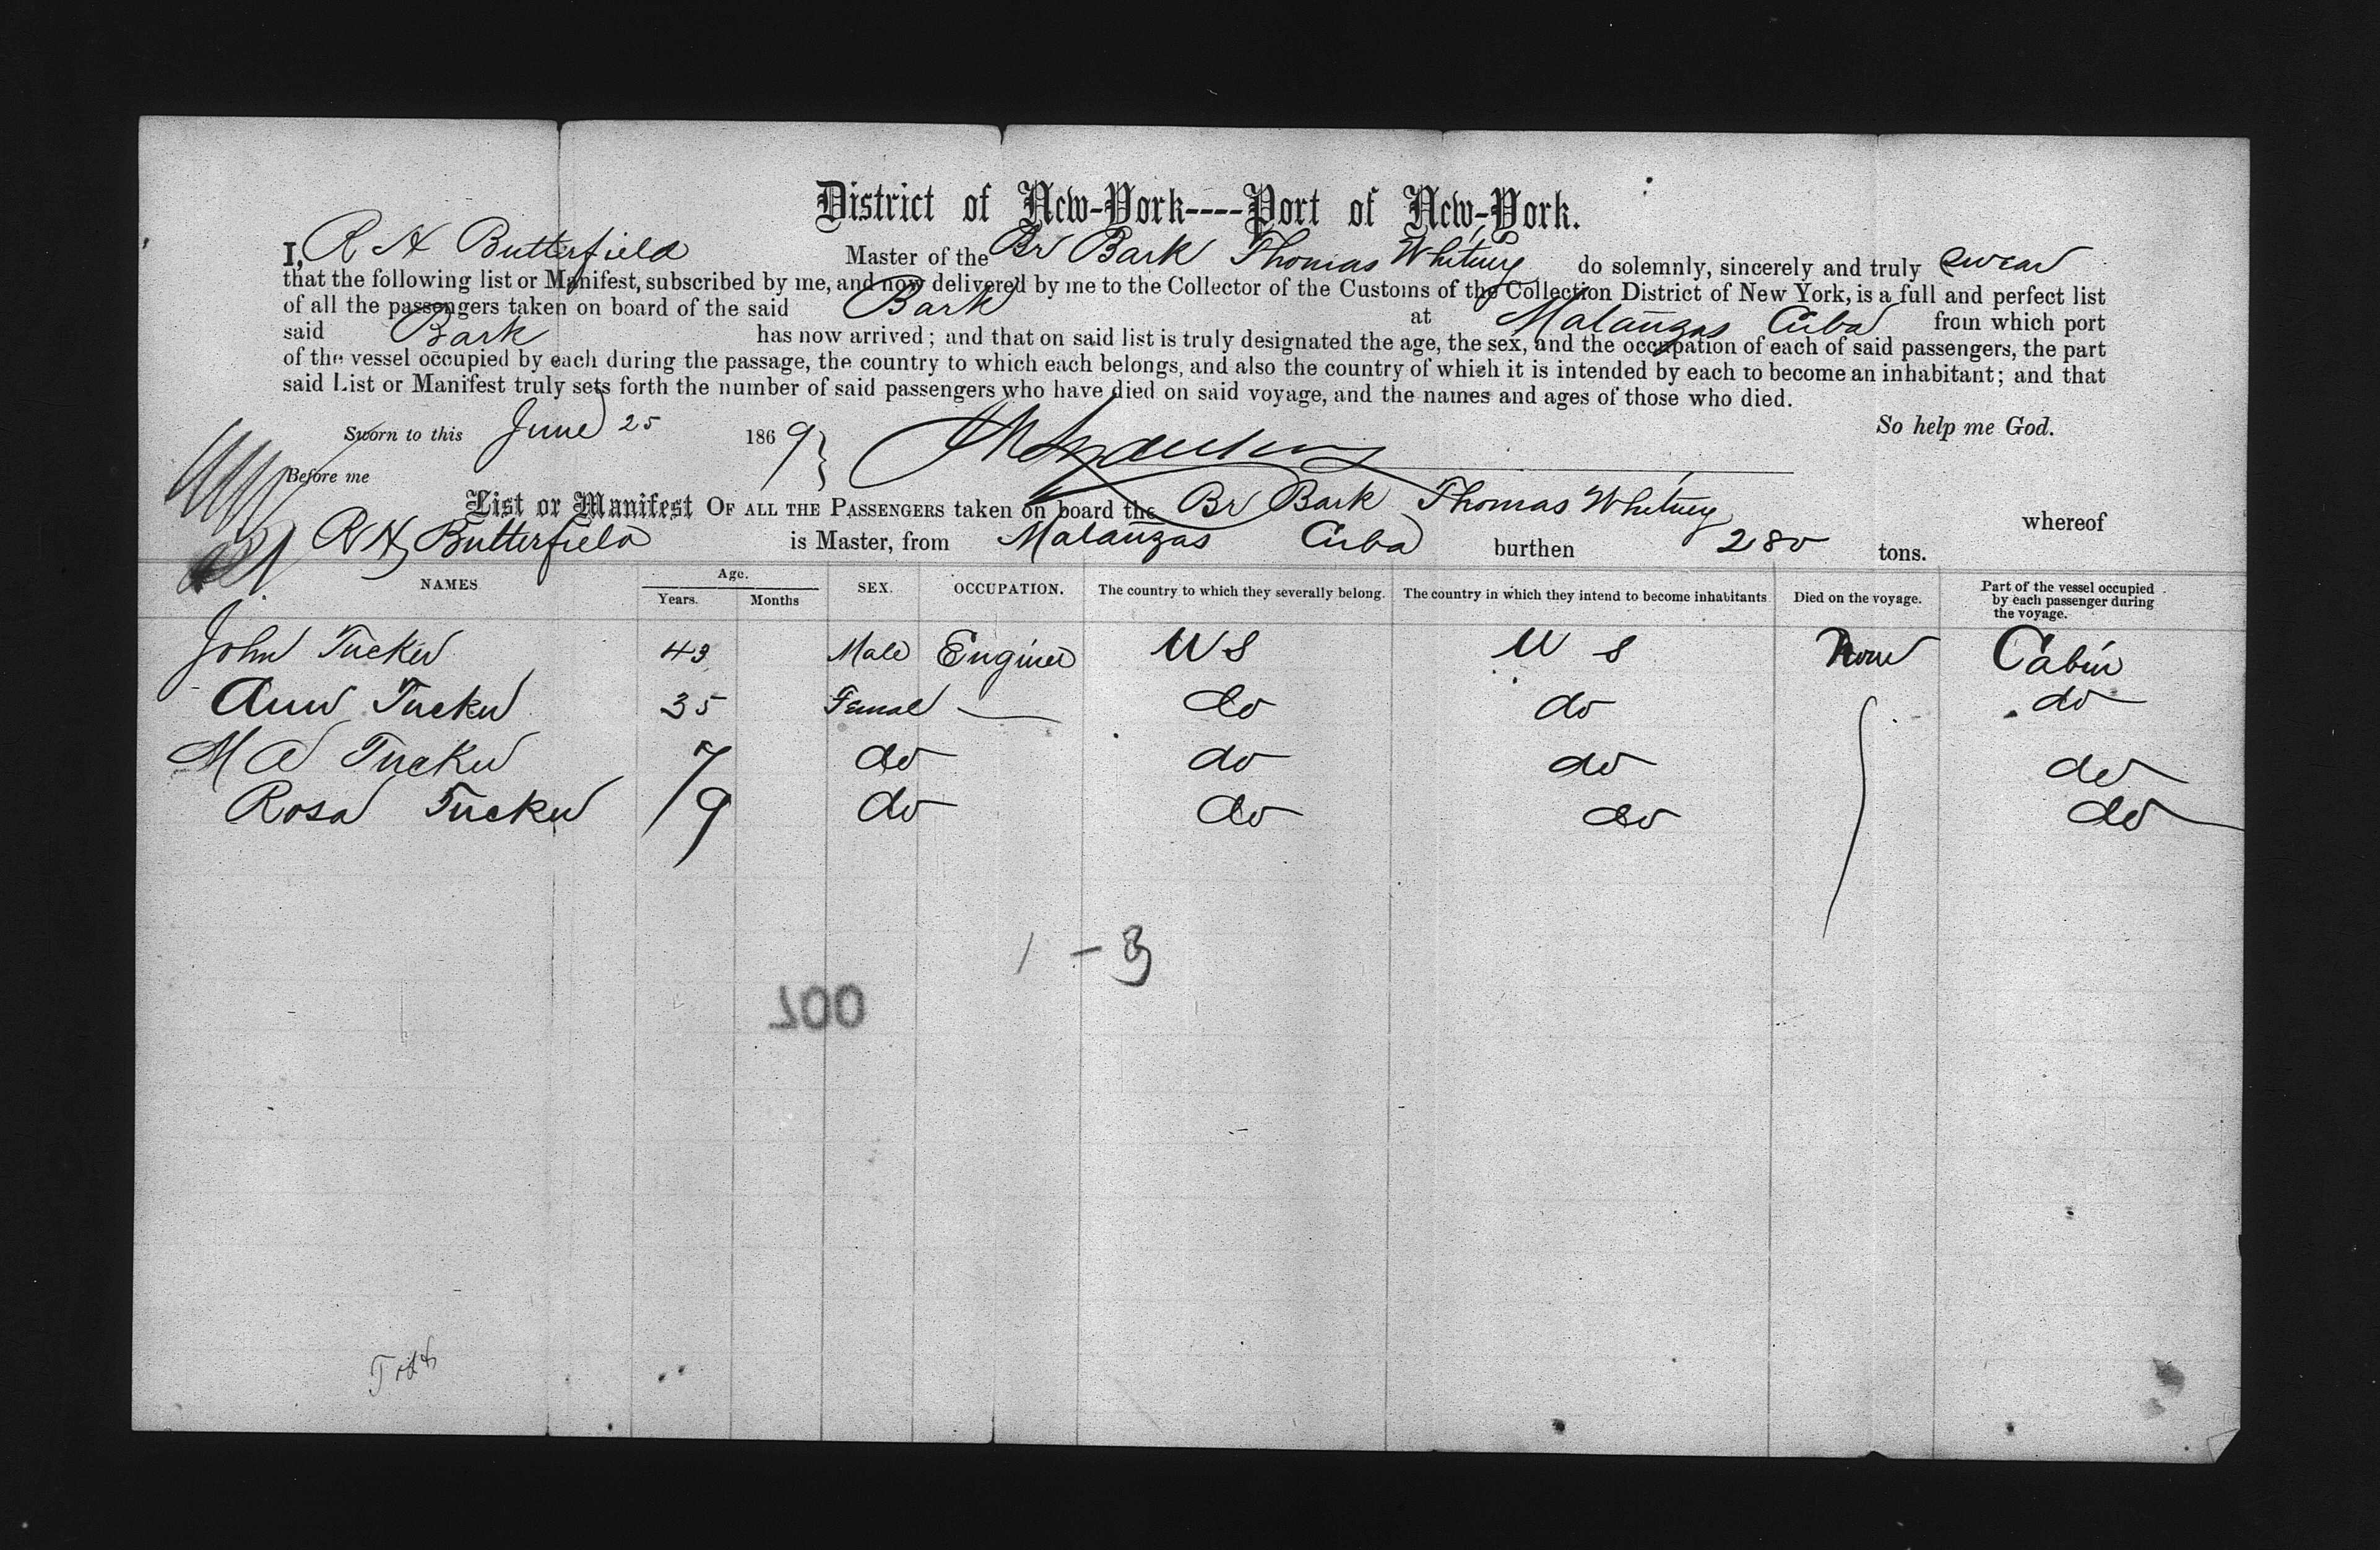 District of New-York----Port of New-York.
I, R H Butterfield Master of the Br Bark Thomas Whitney do solemnly, sincerely and truly swear
that the following list or Manifest, subscribed by me, and now delivered by me to the Collector of the Customs of the Collection District of New York, is a full and perfect list
of all the passengers taken on board of the said Bark at Matanzas Cuba from which port
said Bark has now arrived; and that on said list is truly designated the age, the sex, and the occupation of each of said passengers, the part
of the vessel occupied by each during the passage, the country to which each belongs, and also the country of which it is intended by each to become an inhabitant; and that
said List or Manifest truly sets forth the number of said passengers who have died on said voyage, and the names and ages of those who died.
So help me God.
Sworn to this June 25 1869
Before me
List or Manifest OF ALL THE PASSENGERS taken on board the Br Bark Thomas Whitney whereof
R H Butterfield is Master, from Matanzas Cuba burthen 280 tons.
NAMES Age. Years. Months SEX. OCCUPATION. The country to which they severally belong. The country in which they intend to become inhabitants Died on the voyage. Part of the vessel occupied by each passenger during the voyage.
John Tucker 43 Male Engineer U S U S None Cabin
Ann Tucker 35 Female do do do
M A Tucker 7 do do do do
Rosa Tucker 9 do do do do
1 - 3
200